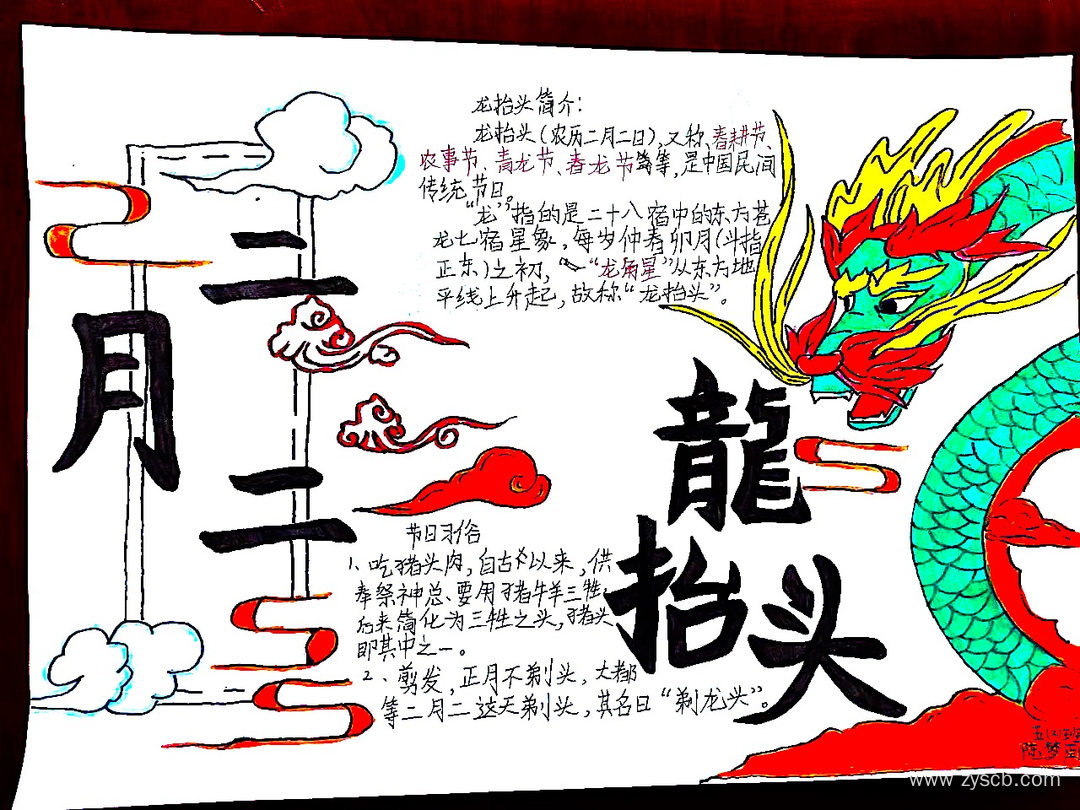 二月二
龙抬头简介：
龙抬头(农历二月二日)，又称春耕节、
农事节、青龙节、春龙节等等，是中国民间
传统节日。
“龙”指的是二十八宿中的东方苍
龙七宿星象，每岁仲春卯月(斗指
正东)之初，“龙角星”从东方地
平线上升起，故称“龙抬头”。
龍
抬头
节日习俗
1、吃猪头肉，自古以来，供
奉祭神总要用猪牛羊三牲，
后来简化为三牲之头，猪头
即其中之一。
2、剪发，正月不剃头，大都
等二月二这天剃头，其名曰“剃龙头”。
www.zyscb.com